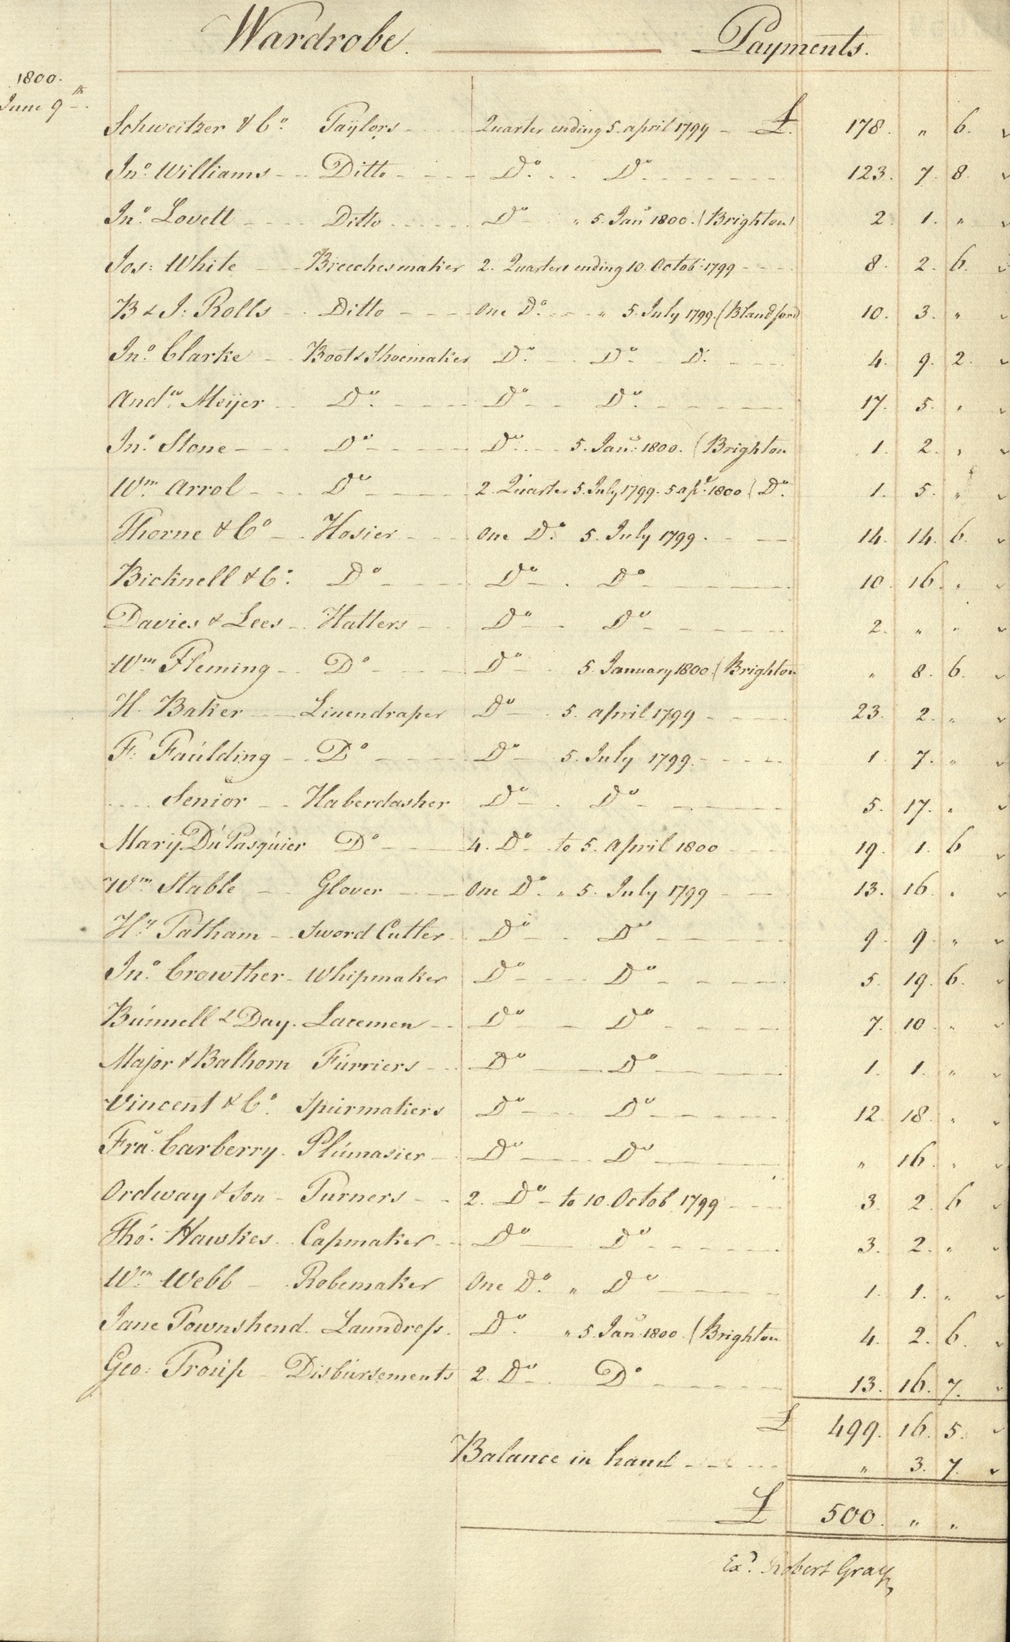 Wardrobe. Payments.
1800.
June 9th.
Schweitzer & Co. Taylors Quarter ending 5. april 1799 £. 178. " 6.
Jno. Williams Ditto Do. Do. 123. 7. 8
Jno. Lovett Ditto Do " 5 Jany. 1800. (Brighton) 2. 1. "
Jos: White Breechesmaker 2. Quarters ending 10. Octob. 1799 8. 2. 6.
B & J: Rolls Ditto One Do. " 5 July 1799. (Blandford 10. 3. "
Jno. Clarke Boot & Shoemaker Do. Do. D. 4. 9. 2.
Andw. Meijer Do. Do. Do. 17. 5. "
Jno. Stone Do Do. 5. Jany. 1800. (Brighton 1. 2. "
Wm. Arrol Do 2. Quarters 5. July 1799. 5 apl. 1800 (Do. 1. 5. "
Thorne & Co Hosier One Do. 5. July 1799. 14. 14. 6.
Bicknell & Co. Do Do. Do 10. 16. "
Davies & Lees Hatters Do. Do. 2. " "
Wm. Fleming Do Do 5 January 1800 (Brighton " 8. 6.
H. Baker Linendraper Do. 5. april 1799 23. 2. "
F: Faulding Do Do 5. July 1799. 1. 7. "
Senior Haberdasher Do. Do. 5. 17. "
Mary Du Pasquier Do 4. Do. to 5. April 1800 19. 1. 6
Wm. Stable Glover One Do. " 5. July 1799 13. 16. "
Hy. Tatham Sword Cutler Do. Do 9. 9. "
Jno. Crowther Whipmaker Do Do 5. 19. 6.
Bunnell & Day. Lacemen Do Do 7. 10. "
Major & Balhorn Furriers Do Do 1. 1. "
Vincent & Co. Spurmakers Do Do 12. 18. "
Fra. Carberry. Plumasier Do Do " 16. "
Ordway & Son Turners 2. Do to 10. Octob. 1799 3. 2. 6
Tho. Hawkes. Capmaker. Do Do 3. 2. "
Wm Webb Robemaker One Do. " Do 1. 1. "
Jane Townshend. Laundress. Do. " 5 Jany. 1800. (Brighton 4. 2. 6.
Geo: Troup Disbursements 2. Do. Do 13. 16. 7.
£ 499. 16. 5.
Balance in hand " 3. 7.
£ 500. " "
Exd. Robert Gray